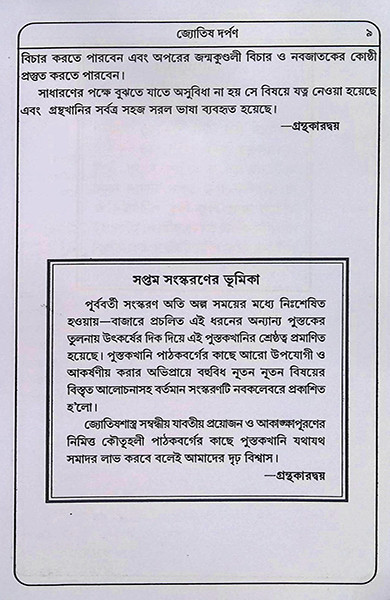 জ্যোতিষ দর্পণ ৯
বিচার করতে পারবেন এবং অপরের জন্মকুণ্ডলী বিচার ও নবজাতকের কোষ্ঠী
প্রস্তুত করতে পারবেন।
সাধারণের পক্ষে বুঝতে যাতে অসুবিধা না হয় সে বিষয়ে যত্ন নেওয়া হয়েছে
এবং গ্রন্থখানির সর্বত্র সহজ সরল ভাষা ব্যবহৃত হয়েছে।
—গ্রন্থকারদ্বয়
সপ্তম সংস্করণের ভূমিকা
পূর্ববর্তী সংস্করণ অতি অল্প সময়ের মধ্যে নিঃশেষিত
হওয়ায়—বাজারে প্রচলিত এই ধরনের অন্যান্য পুস্তকের
তুলনায় উৎকর্ষের দিক দিয়ে এই পুস্তকখানির শ্রেষ্ঠত্ব প্রমাণিত
হয়েছে। পুস্তকখানি পাঠকবর্গের কাছে আরো উপযোগী ও
আকর্ষণীয় করার অভিপ্রায়ে বহুবিধ নূতন নূতন বিষয়ের
বিস্তৃত আলোচনাসহ বর্তমান সংস্করণটি নবকলেবরে প্রকাশিত
হ'লো।
জ্যোতিষশাস্ত্র সম্বন্ধীয় যাবতীয় প্রয়োজন ও আকাঙ্ক্ষাপূরণের
নিমিত্ত কৌতূহলী পাঠকবর্গের কাছে পুস্তকখানি যথাযথ
সমাদর লাভ করবে বলেই আমাদের দৃঢ় বিশ্বাস।
—গ্রন্থকারদ্বয়